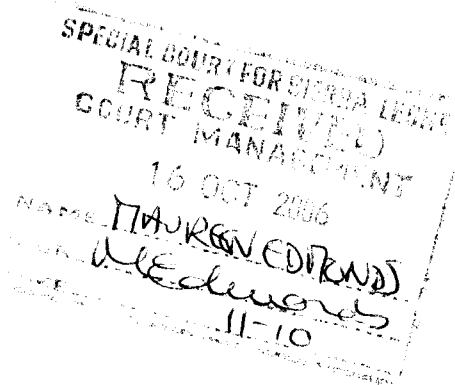 SPECIAL COURT FOR SIERRA LEONE
RECEIVED
COURT MANAGEMENT
16 OCT 2006
NAME MAUREEN EDMONDS
MEdmonds
11-10